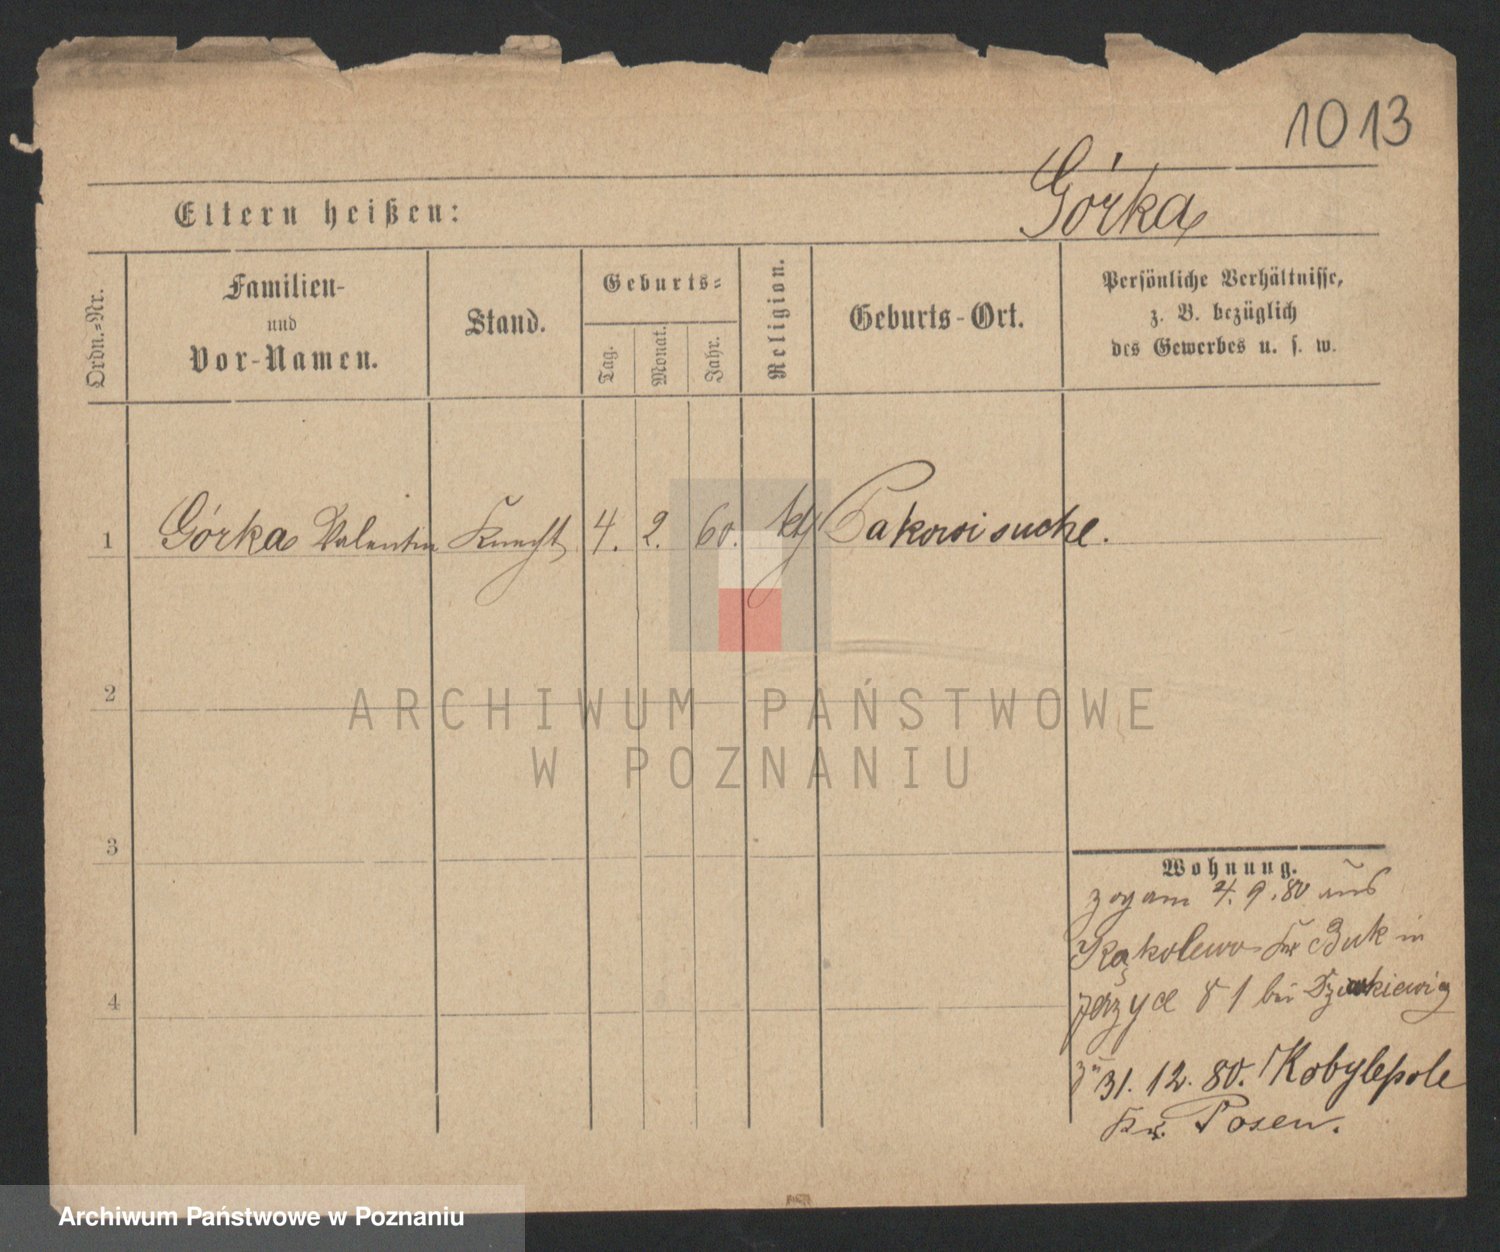 1013
Górka
Eltern heißen:
Ordn.-Nr.
Familien-
und
Vor-Namen.
Stand.
Geburts-
Tag.
Monat.
Jahr.
Religion.
Geburts-Ort.
Persönliche Verhältnisse,
z. B. bezüglich
des Gewerbes u. s. w.
1 Górka Valentin Knecht 4. 2. 60. kth Pakowi suche.
2
3
4
ARCHIWUM PAŃSTWOWE
W POZNANIU
Wohnung.
zog am 4. 9. 80 aus
Kąkolewo Kr Buk in
Jerzyce 81 bei
31. 12. 80. Kobylepole
Kr. Posen.
Archiwum Państwowe w Poznaniu